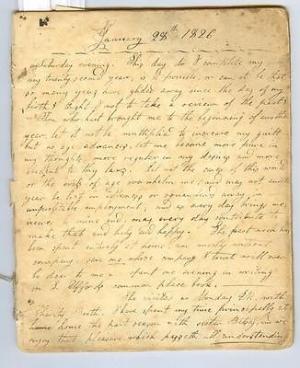 January 28th 1826
Saturday evening. This day do I complete my
my twenty second year, is it possible, or can it be that
so many years have glided away since the day of my
birth & ought I not to take a review of the past
Thou who hast brought me to the beginning of another
year let it not be multiplied to increase my guilt
but as age advances, let me become more pure in
my thoughts, more regular in my desires and more
obedient to thy laws. Let not the cares of this world
or the evils of age overwhelm me, and may not
year be lost in idleness or
unprofitable employment, and as every day brings me
nearer mine end, may every day contribute to
make that end holy and happy. The past year has
been spent entirely at home, am mostly without
company, one whose company I trust will ever
be dear to me spent my evening in writing
in common place book
Monday with
Charity I have spent my time principally at
home the past season with sister Betsy, in
enjoy that pleasure which understanding